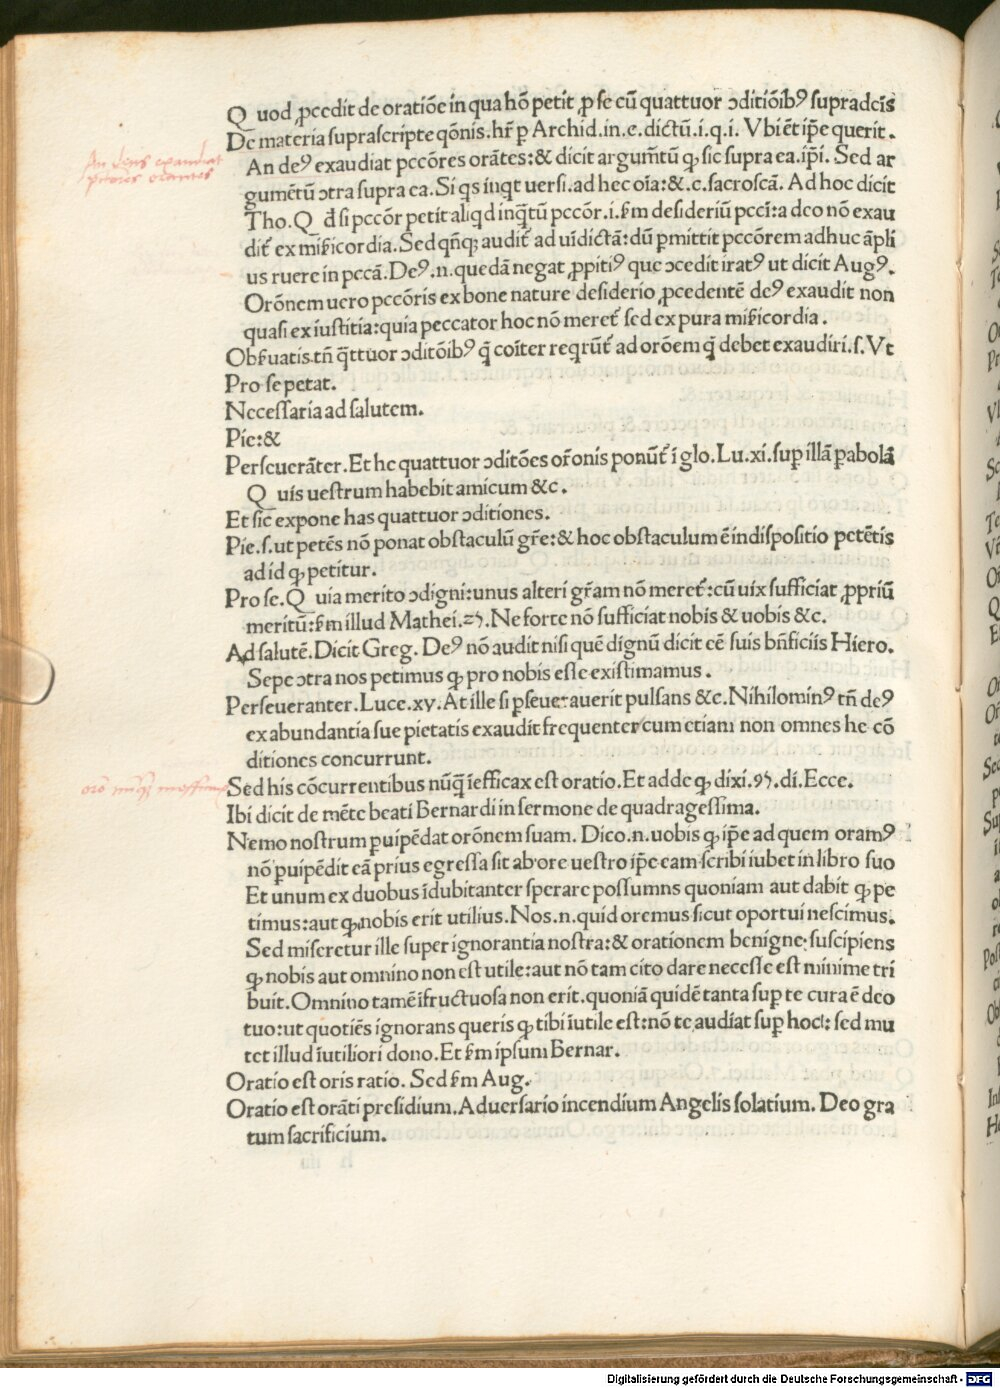 Q uod ꝓcedit de oratiōe in qua hō petit ꝓ se cū quattuor ↄditiōibꝰ supradcīs
De materia suprascripte qōnis.hr̄ p Archid.in.e.dictū.i.q.i. Vbi ēt ip̄e querit.
An deꝰ exaudiat pccōres orātes:& dicit argum̄tū ꝙ sic supra ea.ip̄i. Sed ar
gumētū ↄtra supra ea. Si qs inqt uersi.ad hec oīa:&.c.sacroscā. Ad hoc dicit
Tho. Q d̄ si pccōr petit aliqd inq̄tū pccōr.i.ẜm desideriū pccī:a deo nō exau
dit᷑ ex mīẜicordia. Sed qn̄qꝫ audit᷑ ad uīdictā:dū pmittit pccōrem adhuc āpli
us ruere in pccā. Deꝰ.n.quedā negat ꝓpitiꝰ que ↄcedit iratꝰ ut dicit Augꝰ.
Orōnem uero pccōris ex bone nature desiderio ꝓcedentē deꝰ exaudit non
quasi ex iustitia:quia peccator hoc nō meret᷑ sed ex pura mīẜicordia.
Obẜuatis.tn̄ q̄ttuor ↄditōibꝰ q̄ coīter reqrūt᷑ ad orōem q̄ debet exaudiri.s.Vt
Pro se petat.
Necessaria ad salutem.
Pie:&
Perseuerāter. Et he quattuor ↄditōes or̄onis ponūt᷑ ī glo.Lu.xi.sup illā pabolā
Q uis uestrum habebit amicum &c.
Et sic expone has quattuor ↄditiones.
Pie.s.ut petēs nō ponat obstaculū gr̄e:& hoc obstaculum ē indispositio petētis
ad id ꝙ petitur.
Pro se. Q uia merito ↄdigni:unus alteri gr̄am nō meret᷑:cū uix sufficiat ꝓpriū
meritū:ẜm illud Mathei.25. Ne forte nō sufficiat nobis & uobis &c.
Ad salutē. Dicit Greg. Deꝰ nō audit nisi quē dignū dicit eē suis bn̄ficiis Hiero.
Sepe ↄtra nos petimus ꝙ pro nobis esse existimamus.
Perseueranter. Luce.xv. At ille si pseuerauerit pulsans &c. Nihilominꝰ tn̄ deꝰ
ex abundantia sue pietatis exaudit frequenter cum etiam non omnes he cō
ditiones concurrunt.
Sed his cōcurrentibus nūq̄ īefficax est oratio. Et adde ꝙ dixi.95.di. Ecce.
Ibi dicit de mēte beati Bernardi in sermone de quadragessima.
Nemo nostrum puipēdat orōnem suam. Dico.n.uobis ꝙ ip̄e ad quem oramꝰ
nō puipēdit eā prius egressa sit ab ore uestro ip̄e eam scribi iubet in libro suo
Et unum ex duobus īdubitanter sperare possumns quoniam aut dabit ꝙ pe
timus:aut ꝙ nobis erit utilius. Nos.n.quid oremus sicut oportui nescimus.
Sed miseretur ille super ignorantia nostra:& orationem benigne suscipiens
ꝙ nobis aut omnino non est utile:aut nō tam cito dare necesse est minime tri
buit. Omnino tamē īfructuosa non erit.quoniā quidē tanta sup te cura ē deo
tuo:ut quotiēs ignorans queris ꝙ tibi īutile est:nō te audiat sup hoc: sed mu
tet illud īutiliori dono. Et ẜm ipsum Bernar.
Oratio est oris ratio. Sed ẜm Aug.
Oratio est orāti presidium. Aduersario incendium Angelis solatium. Deo gra
tum sacrificium.
An deus exaudiat
pctores orantes
Digitalisierung gefördert durch die Deutsche Forschungsgemeinschaft - DFG